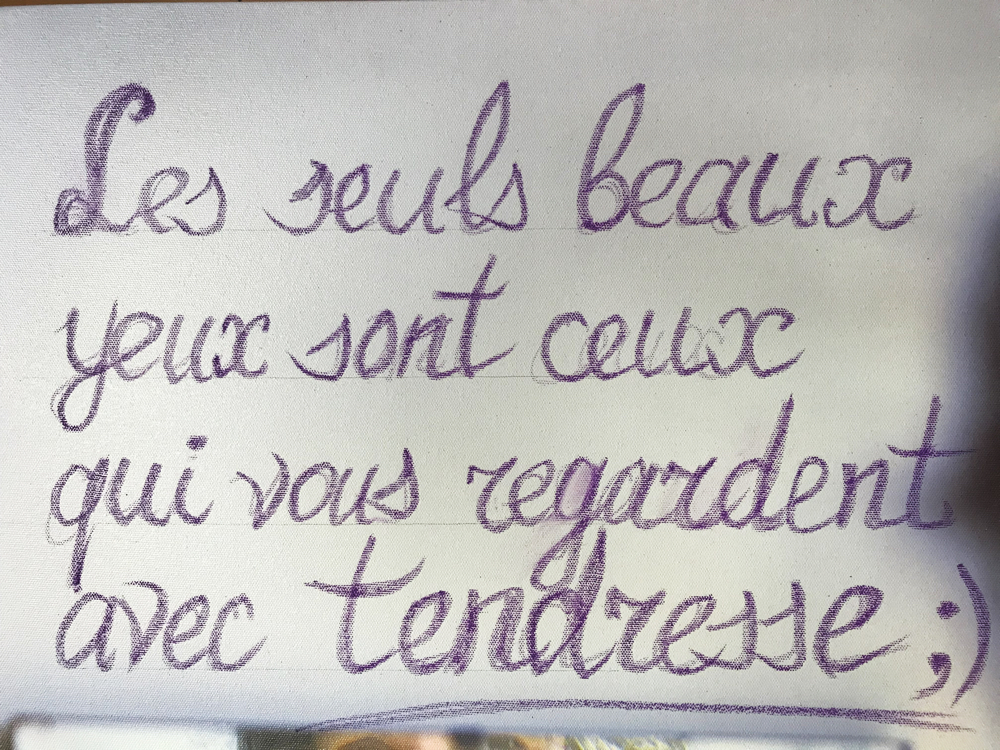 Les seuls beaux
yeux sont ceux
qui vous regardent
avec tendresse ;)